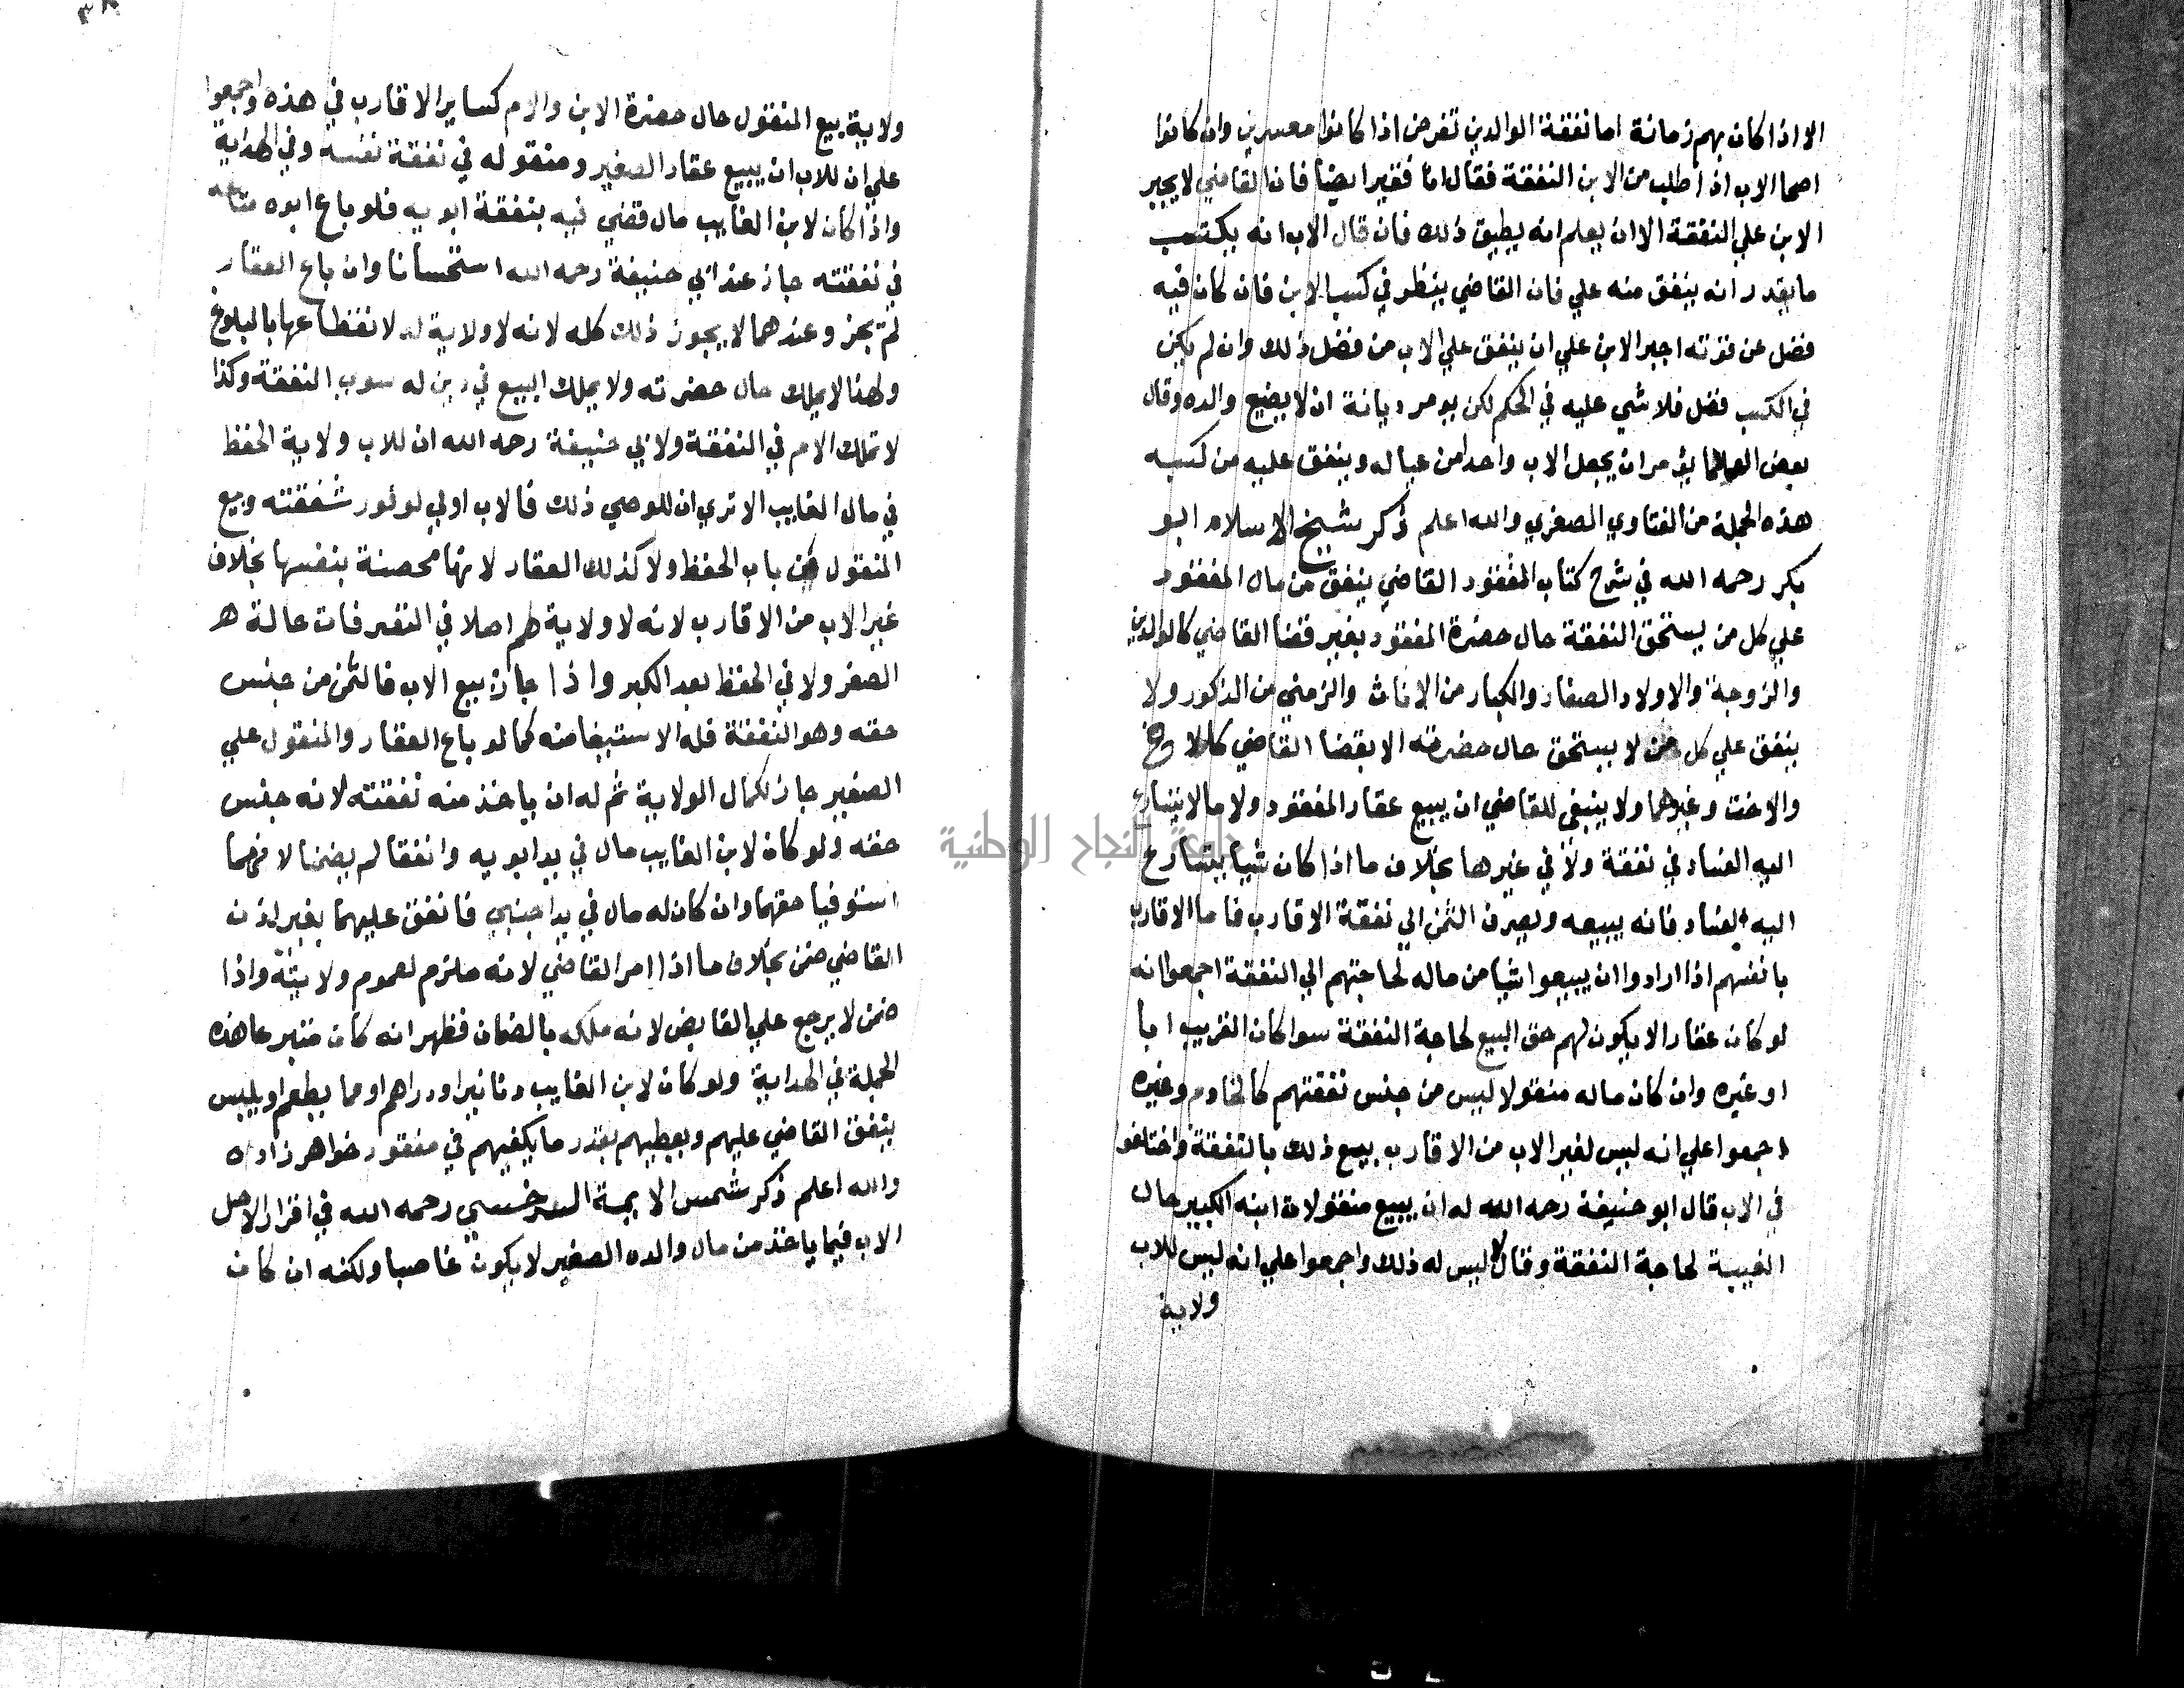 الا اذا كان بهم زمانة اما نفقة الوالدين تفرض اذا كانوا معسرين وان كانوا
اصحا الاب اذا طلب من الابن النفقة فقال انا فقير ايضا فان القاضي لا يجبر
الابن علي النفقة الا ان يعلم انه يطيق ذلك فان قال الاب انه يكتسب
ما يقدر انه ينفق منه علي فان القاضي ينظر في كسب الابن فان كان فيه
فضل عن قوته اجبر الابن علي ان ينفق علي الاب من فضل ذلك وان لم يكن
في الكسب فضل فلا شي عليه في الحكم لكن يومر ديانة ان لا يضيع والده وقال
بعض العلما يؤمر ان يجعل الاب واحدا من عياله وينفق عليه من كسبه
هذه الجملة من الفتاوي الصغري والله اعلم ذكر شيخ الاسلام ابو
بكر رحمه الله في شرح كتاب المفقود القاضي ينفق من مال المفقود
علي كل من يستحق النفقة حال حضرة المفقود بغير قضا القاضي كالوالدين
والزوجة والاولاد الصغار والكبار من الاناث والزمني من الذكور ولا
ينفق علي كل من لا يستحق حال حضرته الا بقضا القاضي كالاخ
والاخت وغيرهما ولا ينبغي للقاضي ان يبيع عقار المفقود ولا ما لا يتسارع
اليه الفساد في نفقة ولا في غيرها بخلاف ما اذا كان شيا يتسارع
اليه الفساد فانه يبيعه ويصرف الثمن الي نفقة الاقارب فاما الاقارب
بانفسهم اذا ارادوا ان يبيعوا شيا من ماله لحاجتهم الي النفقة اجمعوا انه
لو كان عقارا لا يكون لهم حق البيع لحاجة النفقة سوا كان القريب ابا
او غيره وان كان ماله منقولا ليس من جنس نفقتهم كالخادم وغيره
اجمعوا علي انه ليس لغير الاب من الاقارب بيع ذلك بالنفقة واختلفوا
في الاب قال ابو حنيفة رحمه الله له ان يبيع منقولات ابنه الكبير حال
الغيبة لحاجة النفقة وقالا ليس له ذلك واجمعوا علي انه ليس للاب
ولاية
ولاية بيع المنقول حال حضرة الابن والام كساير الاقارب في هذه واجمعوا
علي ان للاب ان يبيع عقار الصغير ومنقوله في نفقة نفسه وفي الهداية
واذا كان لابن الغايب مال قضي فيه بنفقة ابويه فلو باع ابوه متاعه
في نفقته جاز عند ابي حنيفة رحمه الله استحسانا وان باع العقار
لم يجز وعندهما لا يجوز ذلك كله لانه لا ولاية له لانقطاعها بالبلوغ
ولهذا لا يملك حال حضرته ولا يملك البيع في دين له سوي النفقة وكذا
لا تملك الام في النفقة ولابي حنيفة رحمه الله ان للاب ولاية الحفظ
في مال الغايب الا تري ان للوصي ذلك فالاب اولي لوفور شفقته وبيع
المنقول من باب الحفظ ولا كذلك العقار لانها محصنة بنفسها بخلاف
غير الاب من الاقارب لانه لا ولاية لهم اصلا في التصرفات حالة
الصغر ولا في الحفظ بعد الكبر واذا جاز بيع الاب فالثمن من جنس
حقه وهو النفقة فله الاستيفا منه كما لو باع العقار والمنقول علي
الصغير جاز لكمال الولاية ثم له ان ياخذ منه نفقته لانه جنس
حقه ولو كان لابن الغايب مال في يد ابويه وانفقا لم يضمنا لانهما
استوفيا حقهما وان كان له مال في يد اجنبي فانفق عليهما بغير اذن
القاضي ضمن بخلاف ما اذا امر القاضي لانه ملزم لعموم ولايته واذا
ضمن لا يرجع علي القابض لانه ملكه بالضمان فظهر انه كان متبرعا هذه
الجملة في الهداية ولو كان لابن الغايب دنانير او دراهم او مما يطعم او يلبس
ينفق القاضي عليهم ويعطيهم بقدر ما يكفيهم في مفقود خواهر زاده
والله اعلم ذكر شمس الايمة السرخسي رحمه الله في اقرار الاصل
الاب فيما ياخذ من مال والده الصغير لا يكون غاصبا ولكنه ان كان
جامعة النجاح الوطنية